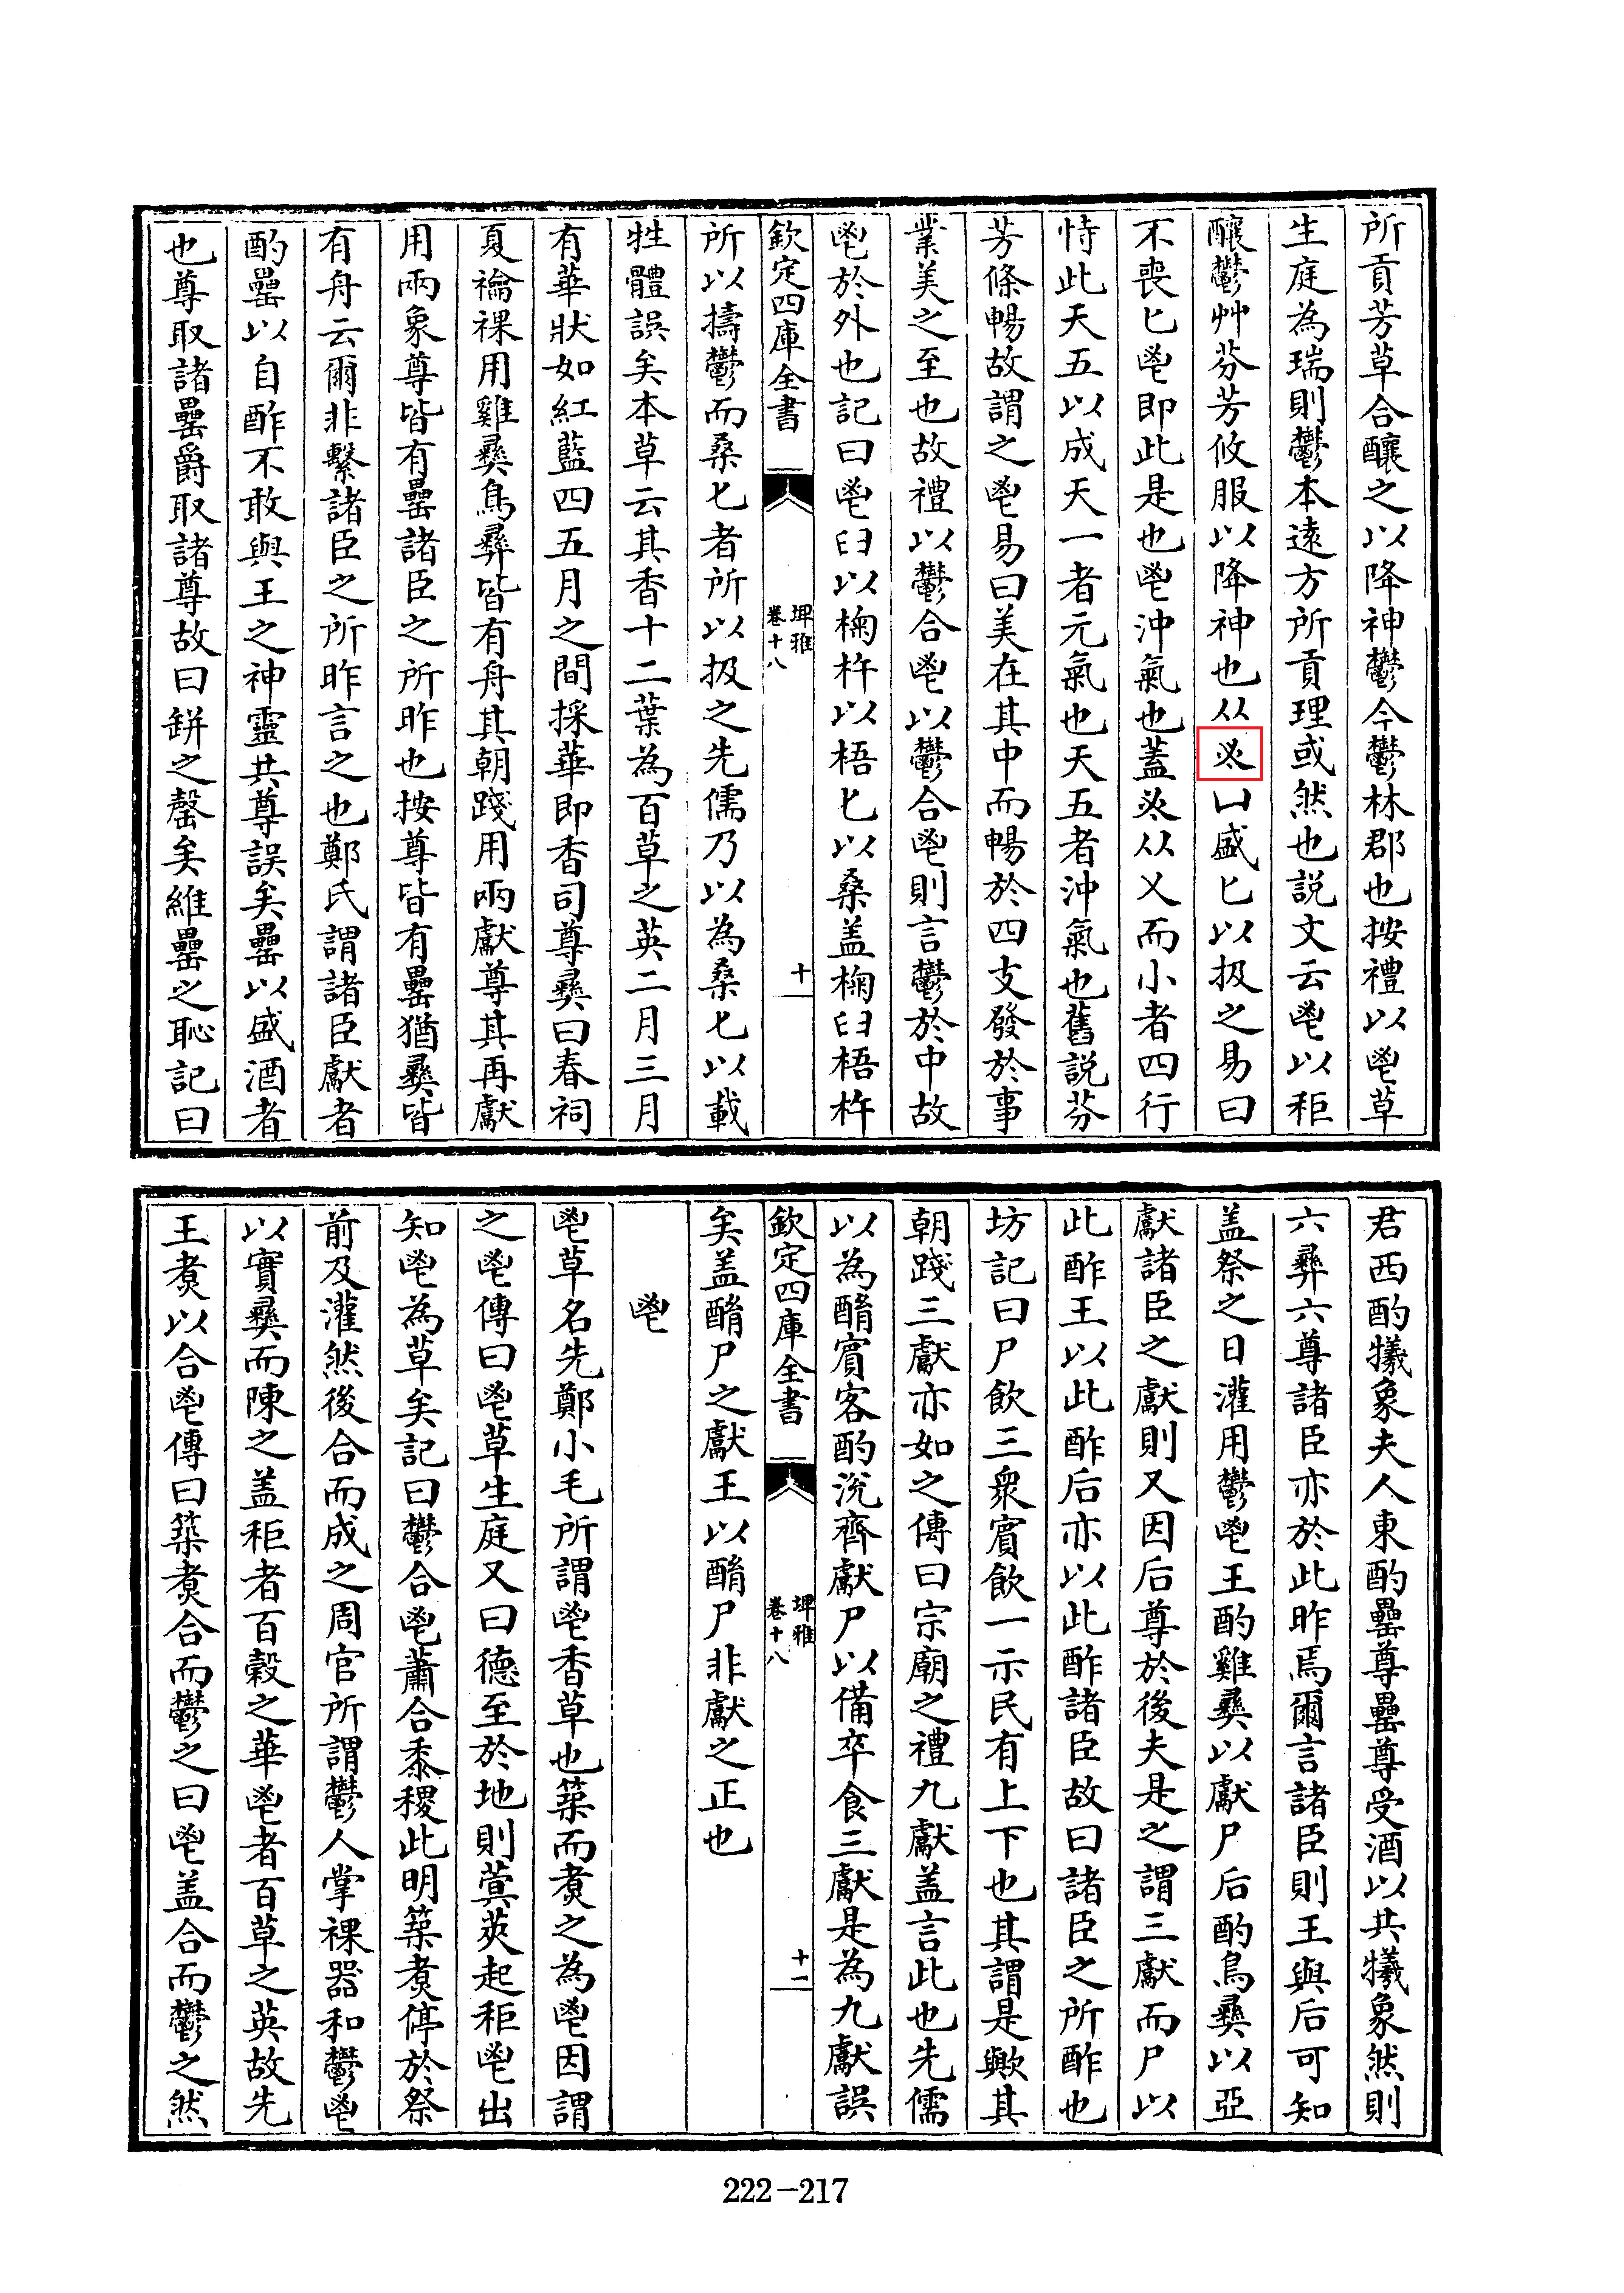 所貢芳草合釀之以降神鬱今鬱林郡也按禮以鬯草
生庭為瑞則鬱本遠方所貢理或然也説文云鬯以秬
釀鬱艸芬芳攸服以降神也从𠂭凵盛匕以扱之易曰
不喪匕鬯即此是也鬯沖氣也蓋𠂭从乂而小者四行
恃此天五以成天一者元氣也天五者沖氣也舊説芬
芳條暢故謂之鬯易曰美在其中而暢於四支發於事
業美之至也故禮以鬱合鬯以鬱合鬯則言鬱於中故
鬯於外也記曰鬯臼以椈杵以梧匕以桑盖椈臼梧杵
欽定四庫全書
埤雅
卷十八
十
所以擣鬱而桑匕者所以扱之先儒乃以為桑匕以載
牲體誤矣本草云其香十二葉為百草之英二月三月
有華狀如紅藍四五月之間採華即香司尊彝曰春祠
夏禴祼用雞彝鳥彝皆有舟其朝踐用兩獻尊其再獻
用兩象尊皆有罍諸臣之所昨也按尊皆有罍猶彝皆
有舟云爾非繫諸臣之所昨言之也鄭氏謂諸臣獻者
酌罍以自酢不敢與王之神靈共尊誤矣罍以盛酒者
也尊取諸罍爵取諸尊故曰缾之罄矣維罍之恥記曰
君西酌犧象夫人東酌罍尊罍尊受酒以共犧象然則
六彝六尊諸臣亦於此昨焉爾言諸臣則王與后可知
盖祭之日灌用鬱鬯王酌雞彝以獻尸后酌鳥彝以亞
獻諸臣之獻則又因后尊於後夫是之謂三獻而尸以
此酢王以此酢后亦以此酢諸臣故曰諸臣之所酢也
坊記曰尸飲三衆賓飲一示民有上下也其謂是歟其
朝踐三獻亦如之傳曰宗廟之禮九獻盖言此也先儒
以為酳賓客酌涚齊獻尸以備卒食三獻是為九獻誤
欽定四庫全書
埤雅
卷十八
十二
矣盖酳尸之獻王以酳尸非獻之正也
鬯
鬯草名先鄭小毛所謂鬯香草也築而煑之為鬯因謂
之鬯傳曰鬯草生庭又曰德至於地則蓂莢起秬鬯出
知鬯為草矣記曰鬱合鬯蕭合黍稷此明築煑停於祭
前及灌然後合而成之周官所謂鬱人掌祼器和鬱鬯
以實彝而陳之盖秬者百榖之華鬯者百草之英故先
王煑以合鬯傳曰築煑合而鬱之曰鬯盖合而鬱之然
222-217